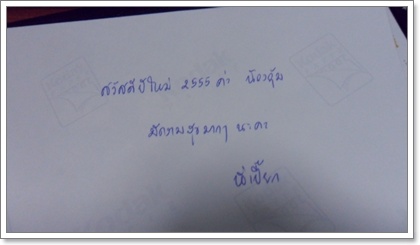 สวัสดีปีใหม่ 2555 ค่า น้องอุ้ม
มีความสุขมากๆ นะคะ
พี่เปี๊ยก